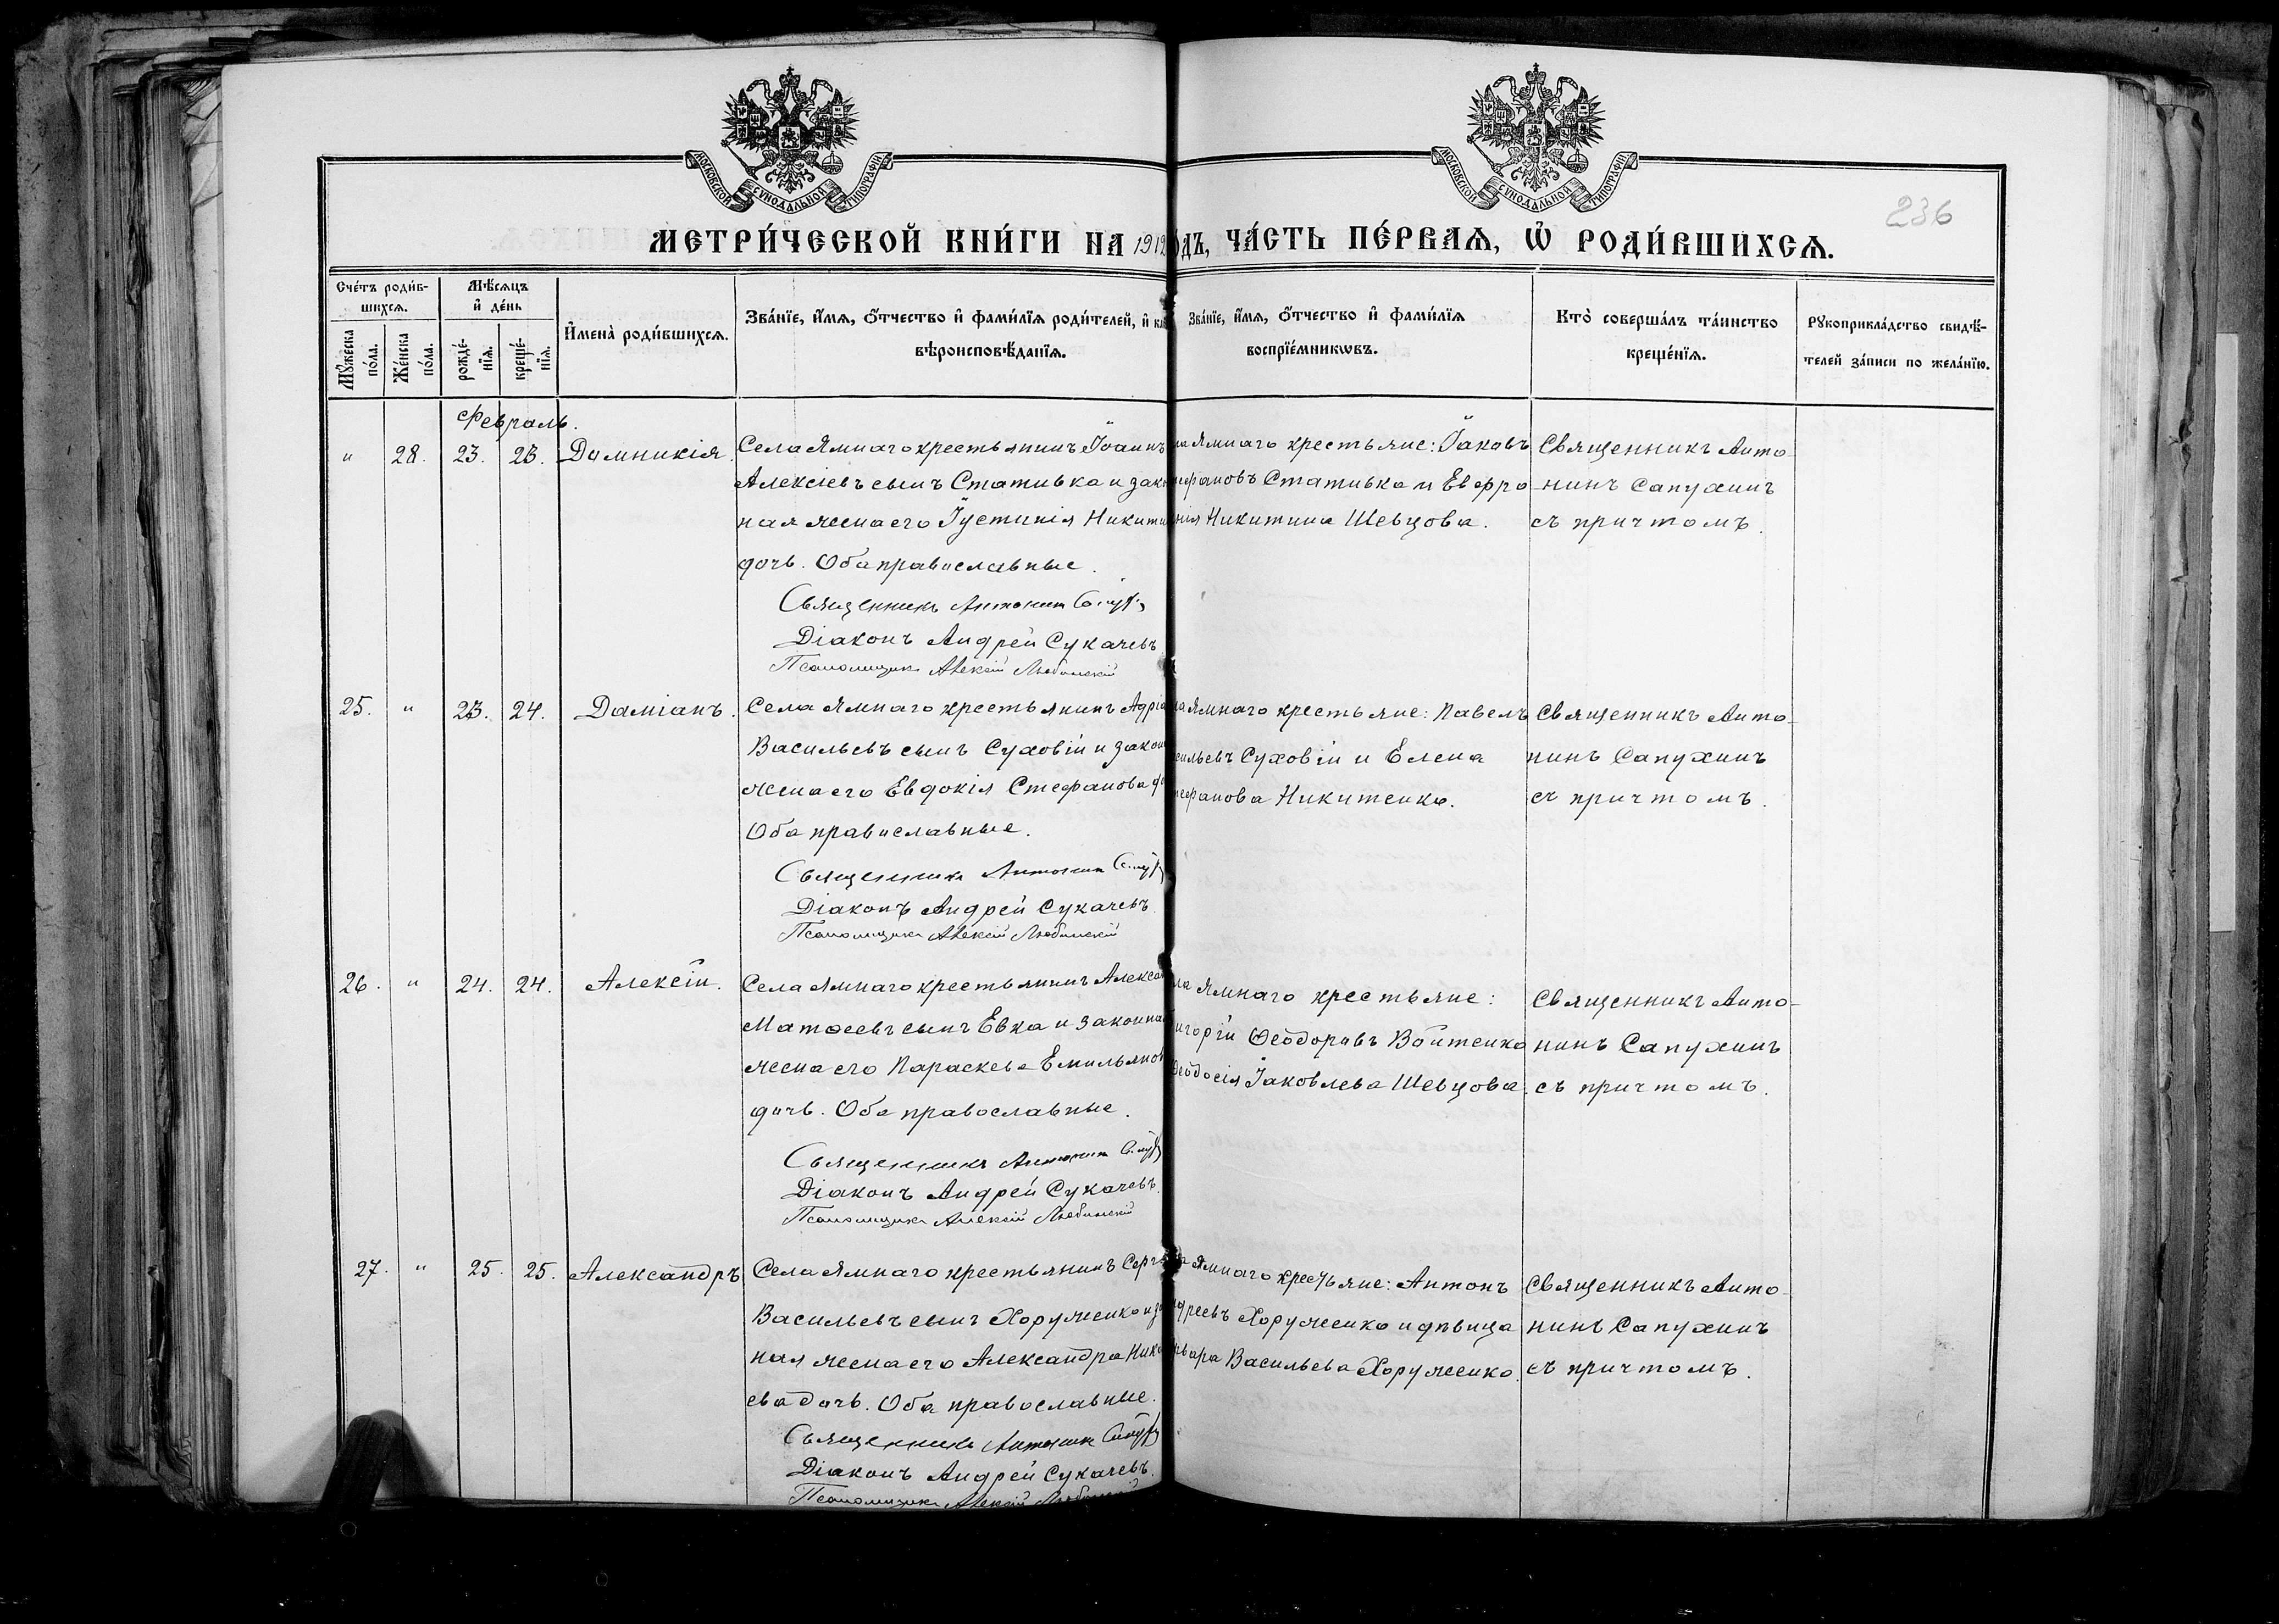 МОСКОВСКОЙ СѴНОДАЛЬНОЙ ТИПОГРАФІИ
МОСКОВСКОЙ СѴНОДАЛЬНОЙ ТИПОГРАФІИ
236
МЕТРИ́ЧЕСКОЙ КНИ́ГИ НА 1912 ОДЪ, ЧА́СТЬ ПЕ́РВАЯ, Ѽ РОДИ́ВШИХСЯ.
Сче́тъ роди́в-
шихся.
Мꙋ́жеска по́ла.
Же́нска по́ла.
Мѣ́сяцъ и҆ де́нь
рожде́-нїя.
креще́-нїя.
И҆мена̀ роди́вшихся.
Зва́нїе, и҆́мя, ѻ҆́тчество и҆ фами́лїя роди́телей, и҆ ка
вѣроисповѣ́данїя.
Зва́нїе, и҆́мя, ѻ҆́тчество и҆ фами́лїя
воспрїе́мникѡвъ.
Кто̀ соверша́лъ та́инство
креще́нїя.
Рꙋкоприкла́дство свидѣ́-
телей за́писи по жела́нїю.
Февраль.
" 28. 23. 23. Домникія.
Села Ямнаго крестьянинъ Іоаннъ
Алексіевъ сынъ Стативка и зако
ная жена его Іустинія Никити
дочь. Оба православные.
Священникъ Антонин
Діаконъ Андрей Сукачевъ
Псаломщикъ Алексій Любинскій
ла Ямнаго крестьяне: Іаковъ
тефановъ Стативка и Евфро
нія Никитина Шевцова.
Священникъ Анто-
нинъ Сапухинъ
съ причтомъ.
25. " 23. 24. Даміанъ.
Села Ямнаго крестьянинъ Адріа
Васильевъ сынъ Суховій и закон
жена его Евдокія Стефанова до
Оба православные.
Священникъ Антонин
Діаконъ Андрей Сукачевъ
Псаломщикъ Алексій Любинскій
ла Ямнаго крестьяне: Павелъ
сильевъ Суховій и Елена
тефанова Никитенко.
Священникъ Анто-
нинъ Сапухинъ
съ причтомъ.
26. " 24. 24. Алексій.
Села Ямнаго крестьянинъ Алекса
Матѳеевъ сынъ Евка и законна
жена его Параскева Емильянов
дочь. Оба православные.
Священникъ Антонин
Діаконъ Андрей Сукачевъ.
Псаломщикъ Алексій Любинскій
ла Ямнаго крестьяне:
игорій Ѳеодоровъ Войтенко
Ѳеодосія Іаковлева Шевцова.
Священникъ Анто-
нинъ Сапухинъ
съ причтомъ.
27. " 25. 25. Александръ
Села Ямнаго крестьянинъ Серг
Васильевъ сынъ Хоруженко и за
ная жена его Александра Нико
ева дочь. Оба православные.
Священникъ Антонин
Діаконъ Андрей Сукачевъ.
Псаломщикъ Алексій Любинскій
а Ямнаго крестьяне: Антонъ
ндреевъ Хоруженко и дѣвица
рвара Васильева Хоруженко.
Священникъ Анто-
нинъ Сапухинъ
съ причтомъ.